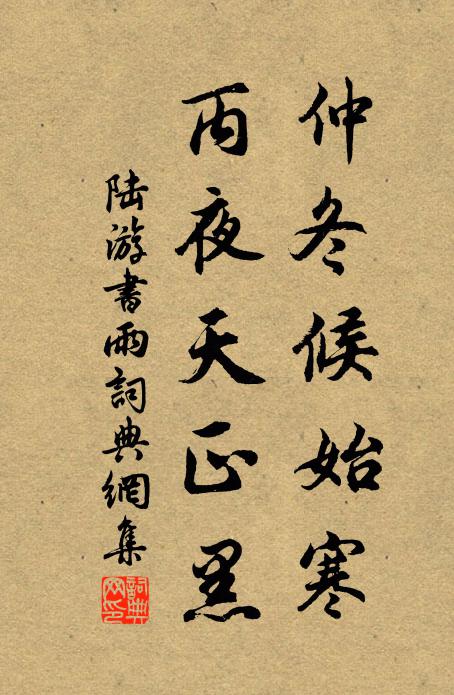 仲冬候始寒
丙夜天正黑
陆游書雨詞典網集
詞典网印